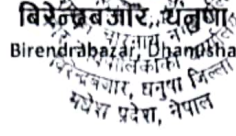 बिरेन्द्रबजार, धनुषा
Birendrabazar, Dhanusha
बजार, धनुषा जिल्ला
मधेश प्रदेश, नेपाल